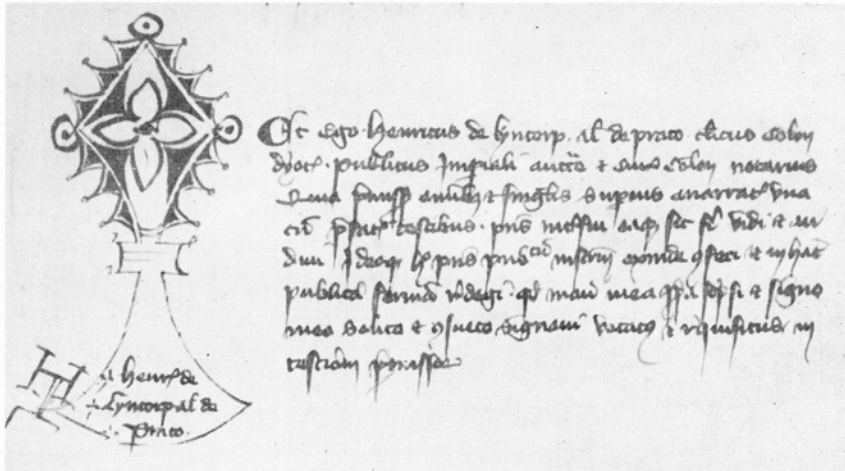 Et ego Henricus de lyntorp al' de prato clīcus Colon
dyoc' publicus Imp̄iali auctē et Curie Colon notarius
Quia p̄missis om̄ib et singlis supius enarrat' vna
cū p̄fat' testibus p̄ns int'fui eaq sic fi'i vidi et au
diui Ideoq h' p̄ns publicū instrm exinde 9feci et in hāc
publicā formā redegi qd manu mea ꝓp'a sc'psi et signo
meo solito et 9sueto signaui vocatus et requisitus in
testiōm p̄missor
h henr' de
lyntorp al' de
prato